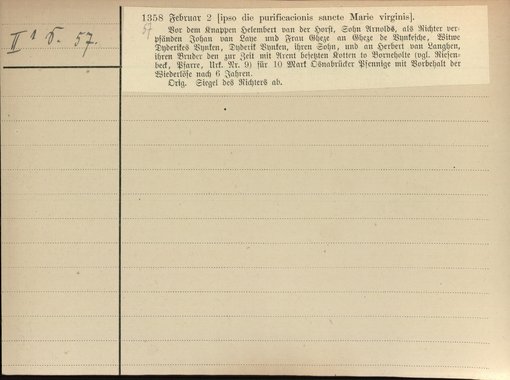 II 1 6. 57.
1358 Februar 2 [ipso die purificacionis sancte Marie virginis].
57
Vor dem Knappen Helembert van der Horst, Sohn Arnolds, als Richter ver-
pfänden Johan van Laye und Frau Gheze an Gheze de Vynkesche, Witwe
Dyderikes Vynken, Dyderik Vynken, ihren Sohn, und an Herbert van Langhen,
ihren Bruder den zur Zeit mit Arent besetzten Kotten to Borneholte (vgl. Riesen-
beck, Pfarre, Urk. Nr. 9) für 10 Mark Osnabrücker Pfennige mit Vorbehalt der
Wiederlöse nach 6 Jahren.
Orig. Siegel des Richters ab.